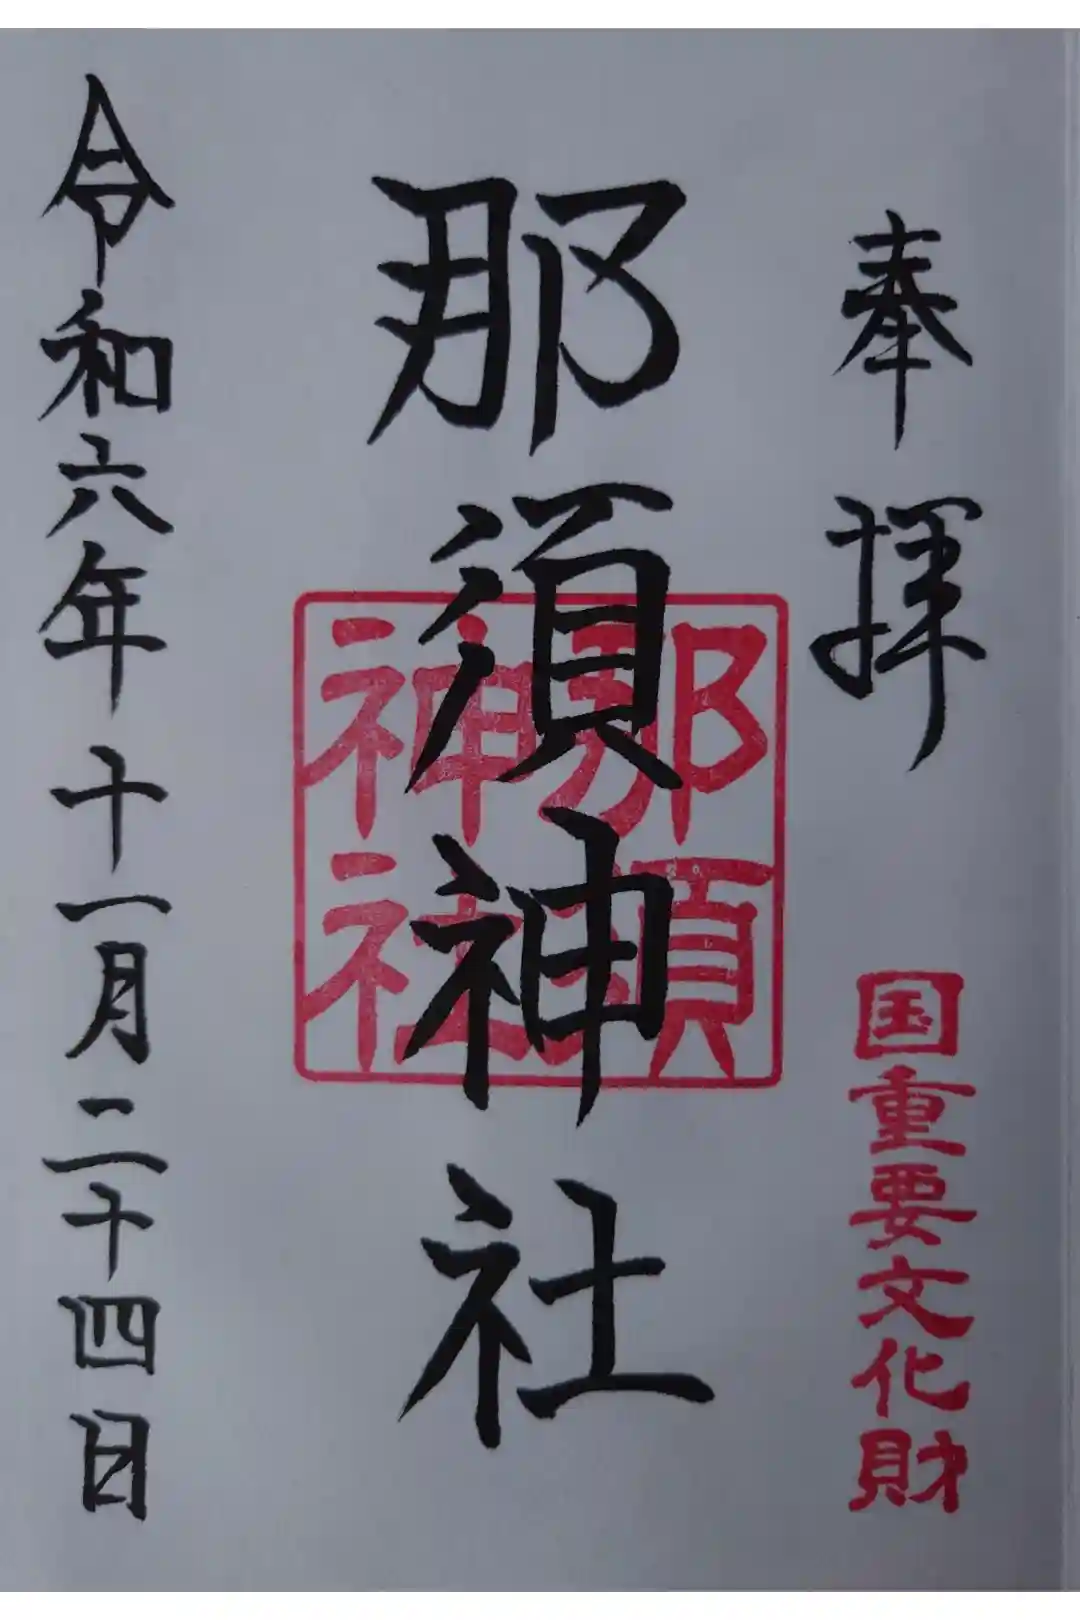 奉拝
国重要文化財
那須神社
那須
神社
令和六年十一月二十四日